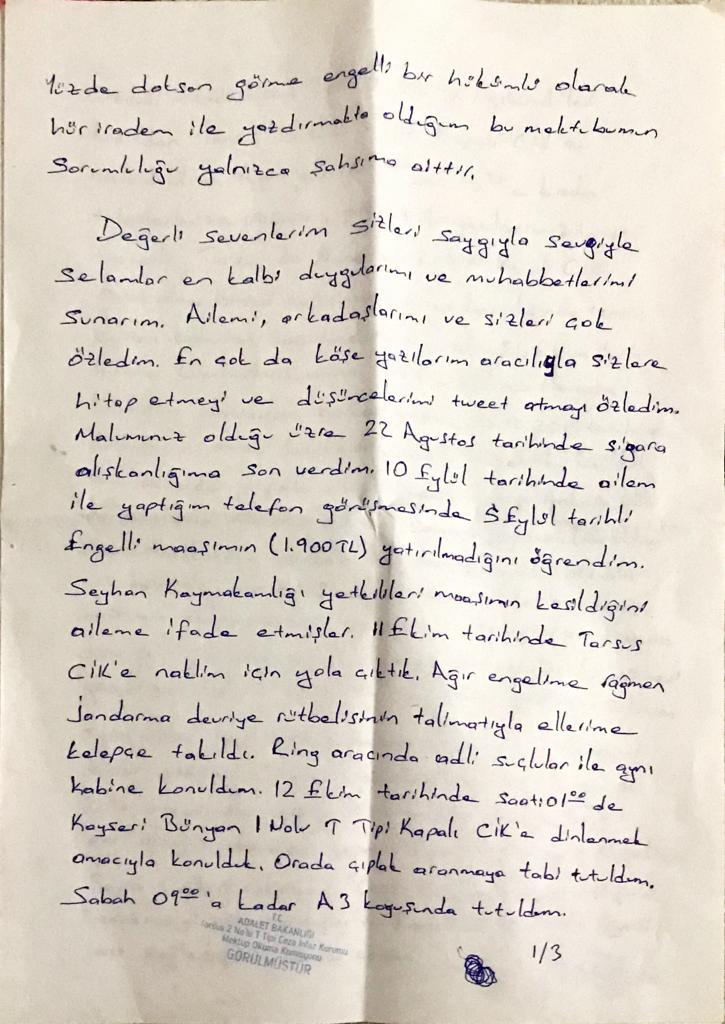 Yüzde doksan görme engelli bir hükümlü olarak
hür iradem ile yazdırmakta olduğum bu mektubumun
Sorumluluğu yalnızca şahsıma aittir.
Değerli sevenlerim sizleri saygıyla sevgiyle
selamlar en kalbi duygularımı ve muhabbetlerimi
sunarım. Ailemi, arkadaşlarımı ve sizleri çok
özledim. En çok da köşe yazılarım aracılığla sizlere
hitap etmeyi ve düşüncelerimi tweet atmayı özledim.
Malumunuz olduğu üzre 22 Agustos tarihinde sigara
alışkanlığıma son verdim. 10 Eylül tarihinde ailem
ile yaptığım telefon görüşmesinde 5 Eylül tarihli
Engelli maaşımın (1.900 TL) yatırılmadığını öğrendim.
Seyhan Kaymakamlığı yetkilileri maaşımın kesildiğini
aileme ifade etmişler. 11 Ekim tarihinde Tarsus
CİK'e naklim için yola çıktık. Ağır engelime rağmen
Jandarma devriye rütbelisinin talimatıyla ellerime
kelepçe takıldı. Ring aracında adli suçlular ile aynı
kabine konuldum. 12 Ekim tarihinde saat:01⁰⁰ de
Kayseri Bünyan 1 Nolu T Tipi Kapalı CİK'e dinlenmek
amacıyla konulduk. Orada çıplak aranmaya tabi tutuldum.
Sabah 09⁰⁰'a kadar A3 koğuşunda tutuldum.
T.C.
ADALET BAKANLIĞI
Tarsus 2 Nolu T Tipi Ceza İnfaz Kurumu
Mektup Okuma Komisyonu
GÖRÜLMÜŞTÜR
1/3